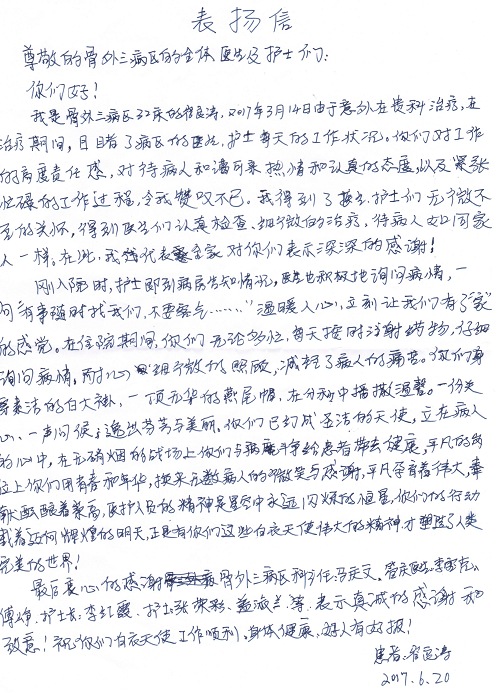 表扬信
尊敬的骨外三病区的全体医生及护士们:
你们好!
我是骨外三病区32床的 2017年3月14日由于意外在贵科治疗,在
治疗期间,目睹了病区的医生,护士每天的工作状况。你们对工作
的高度责任感,对待病人和蔼可亲热情和认真的态度,以及紧张
忙碌的工作过程,令我赞叹不已。我得到了医生、护士们无微不
至的关怀,得到医生们认真检查、细微的治疗,待病人如同家
人一样。在此,我代表全家对你们表示深深的感谢!
刚入院时,护士即到病房告知情况,医生也积极地询问病情,一
句“有事随时找我们,不要客气……”温暖人心,立刻让我们有了“家”
的感觉。在住院期间,你们无论多忙,每天按时注射药物,仔细
询问病情。耐心细微的照顾,减轻了病人的痛苦。你们身
穿素洁的白大褂,一顶无华的燕尾帽,在分秒中播撒温馨。一份关
心、一声问候,逸出芬芳与美丽。你们已幻成圣洁的天使,立在病人
的心中,在无硝烟的战场上你们与病魔斗争给患者带去健康,平凡的岗
位上你们用青春和年华,换来无数病人的微笑与感谢,平凡孕育着伟大,奉
献酝酿着崇高,医护人员的精神是星空中永远闪烁的恒星,你们的行动
载着迈向辉煌的明天,正是有你们这些白衣天使伟大的精神,才塑造了人类
完美的世界!
最后衷心的感谢骨外三病区科主任:冯庆文、
傅 护士长:李红霞、护士张荣彩、孟淑兰等,表示真诚的感谢和
致意!祝你们白衣天使工作顺利,身体健康,好人有好报!
患者:
2017.6.20